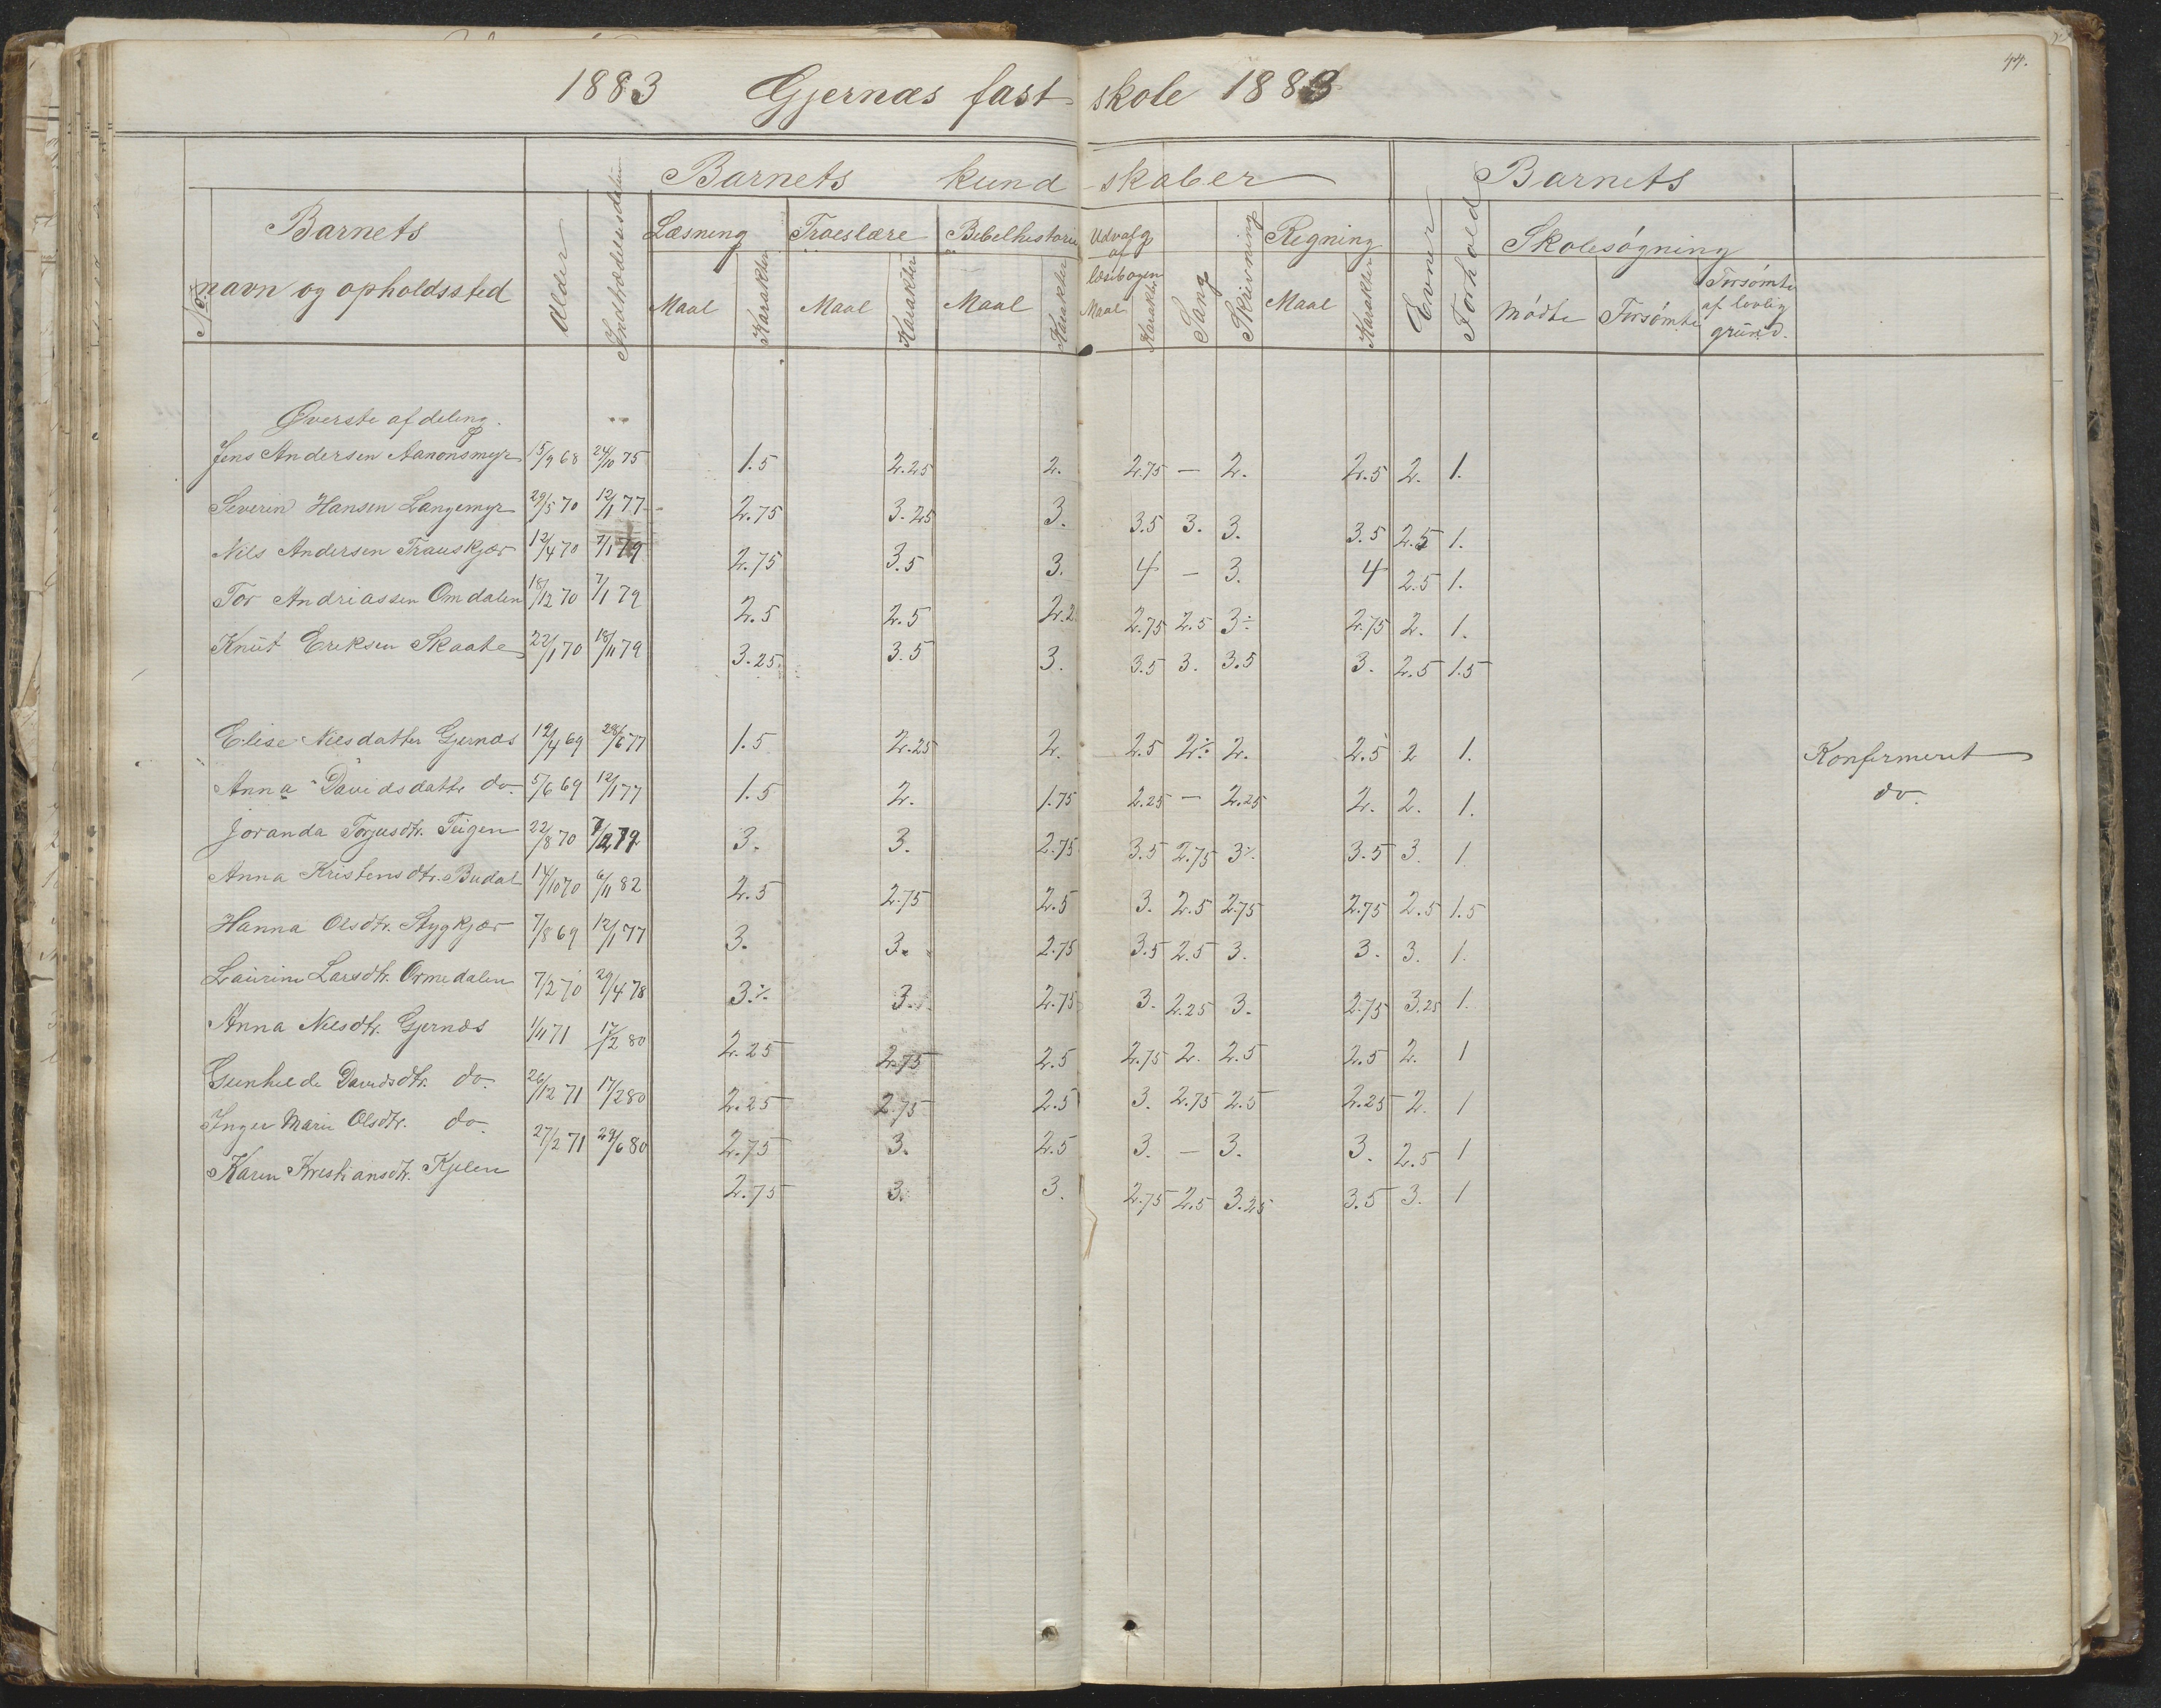 44.
1883 Gjernæs fast skole 1883
Barnets kund-skaber Barnets
No. Barnets navn og opholdssted Alder Indtrædelsesdatum Læsning Troeslære Bibelhistorie Udvalg af læsebogen Sang Skrivning Regning Evner Forhold Skolesøgning
Maal Karakter Maal Karakter Maal Karakter Maal Karakter Maal Karakter Mødte Forsømte Forsømte af lovlig grund.
Øverste afdeling.
Jens Andersen Aanonsmyr 15/9 68 24/10 75 1.5 2.25 2. 2.75 — 2. 2.5 2. 1.
Severin Hansen Langemyr 29/5 70 12/1 77 2.75 3.25 3. 3.5 3. 3. 3.5 2.5 1.
Nils Andersen Trauskjær 12/4 70 7/1 79 2.75 3.5 3. 4 — 3. 4 2.5 1.
Tor Andriassen Omdalen 18/12 70 7/1 79 2.5 2.5 2.2 2.75 2.5 3÷ 2.75 2. 1.
Knut Eriksen Skaate 22/1 70 18/11 79 3.25 3.5 3. 3.5 3. 3.5 3. 2.5 1.5
Elise Nilsdatter Gjernæs 12/4 69 28/6 77 1.5 2.25 2. 2.5 2÷ 2. 2.5 2 1. Konfirmeret
Anna Davidsdatter do. 5/6 69 12/1 77 1.5 2. 1.75 2.25 — 2.25 2. 2. 1. do.
Joranda Torjusdtr. Teigen 22/8 70 3. 3. 2.75 3.5 2.75 3÷ 3.5 3. 1.
Anna Kristensdtr. Budal 14/10 70 6/11 82 2.5 2.75 2.5 3. 2.5 2.75 2.75 2.5 1.5
Hanna Olsdtr. Stygkjær 7/8 69 12/1 77 3. 3. 2.75 3.5 2.5 3. 3. 3. 1.
Laurine Larsdtr. Ormedalen 7/2 70 29/4 78 3÷ 3. 2.75 3. 2.25 3. 2.75 3.25 1.
Anna Nilsdtr. Gjernæs 1/11 71 17/2 80 2.25 2.75 2.5 2.75 2. 2.5 2.5 2. 1
Gunhilde Davidsdtr. do. 26/12 71 17/2 80 2.25 2.75 2.5 3. 2.75 2.5 2.25 2. 1
Inger Marie Olsdtr. do. 27/2 71 29/6 80 2.75 3. 2.5 3. — 3. 3. 2.5 1
Karen Kristiansdtr. Kjilen 2.75 3. 3. 2.75 2.5 3.25 3.5 3. 1